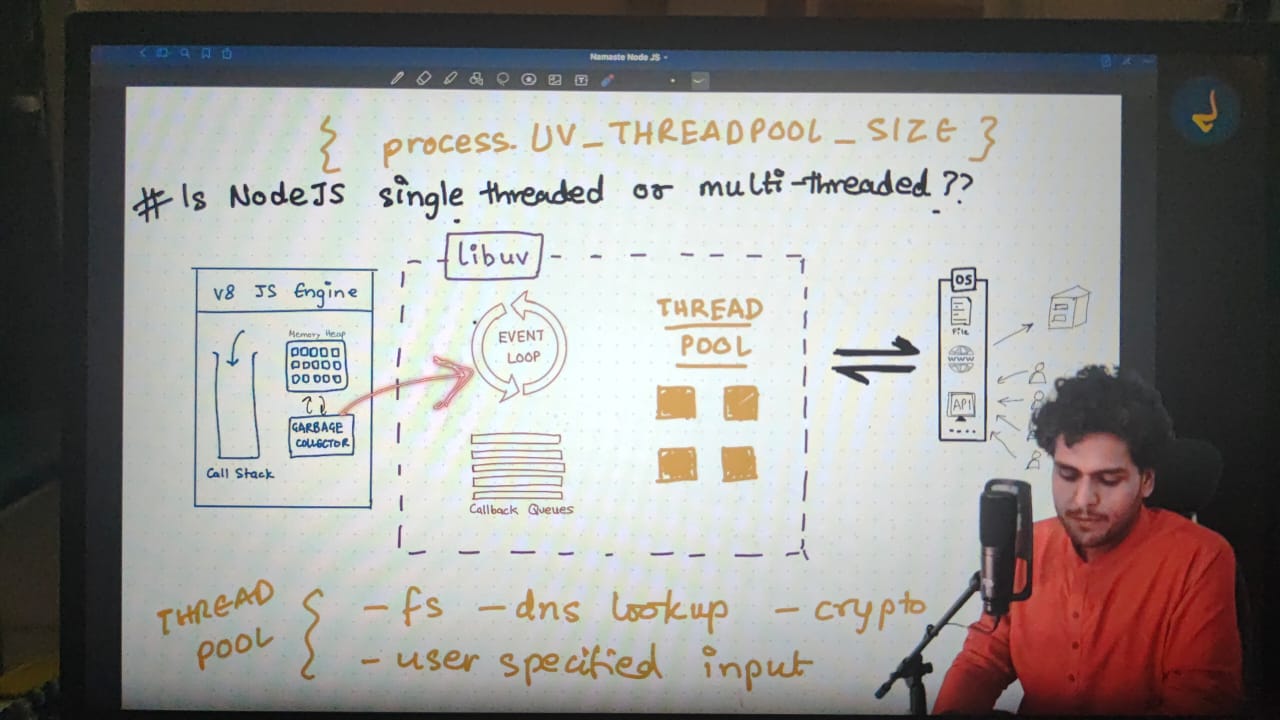 Namaste Node JS
{ process. UV_THREADPOOL_SIZE }
# Is NodeJS single threaded or multi-threaded ??
libuv
V8 JS Engine
Memory Heap
GARBAGE
COLLECTOR
Call Stack
EVENT
LOOP
Callback Queues
THREAD
POOL
OS
File
WWW
API
THREAD
POOL
- fs - dns lookup - crypto
- user specified input